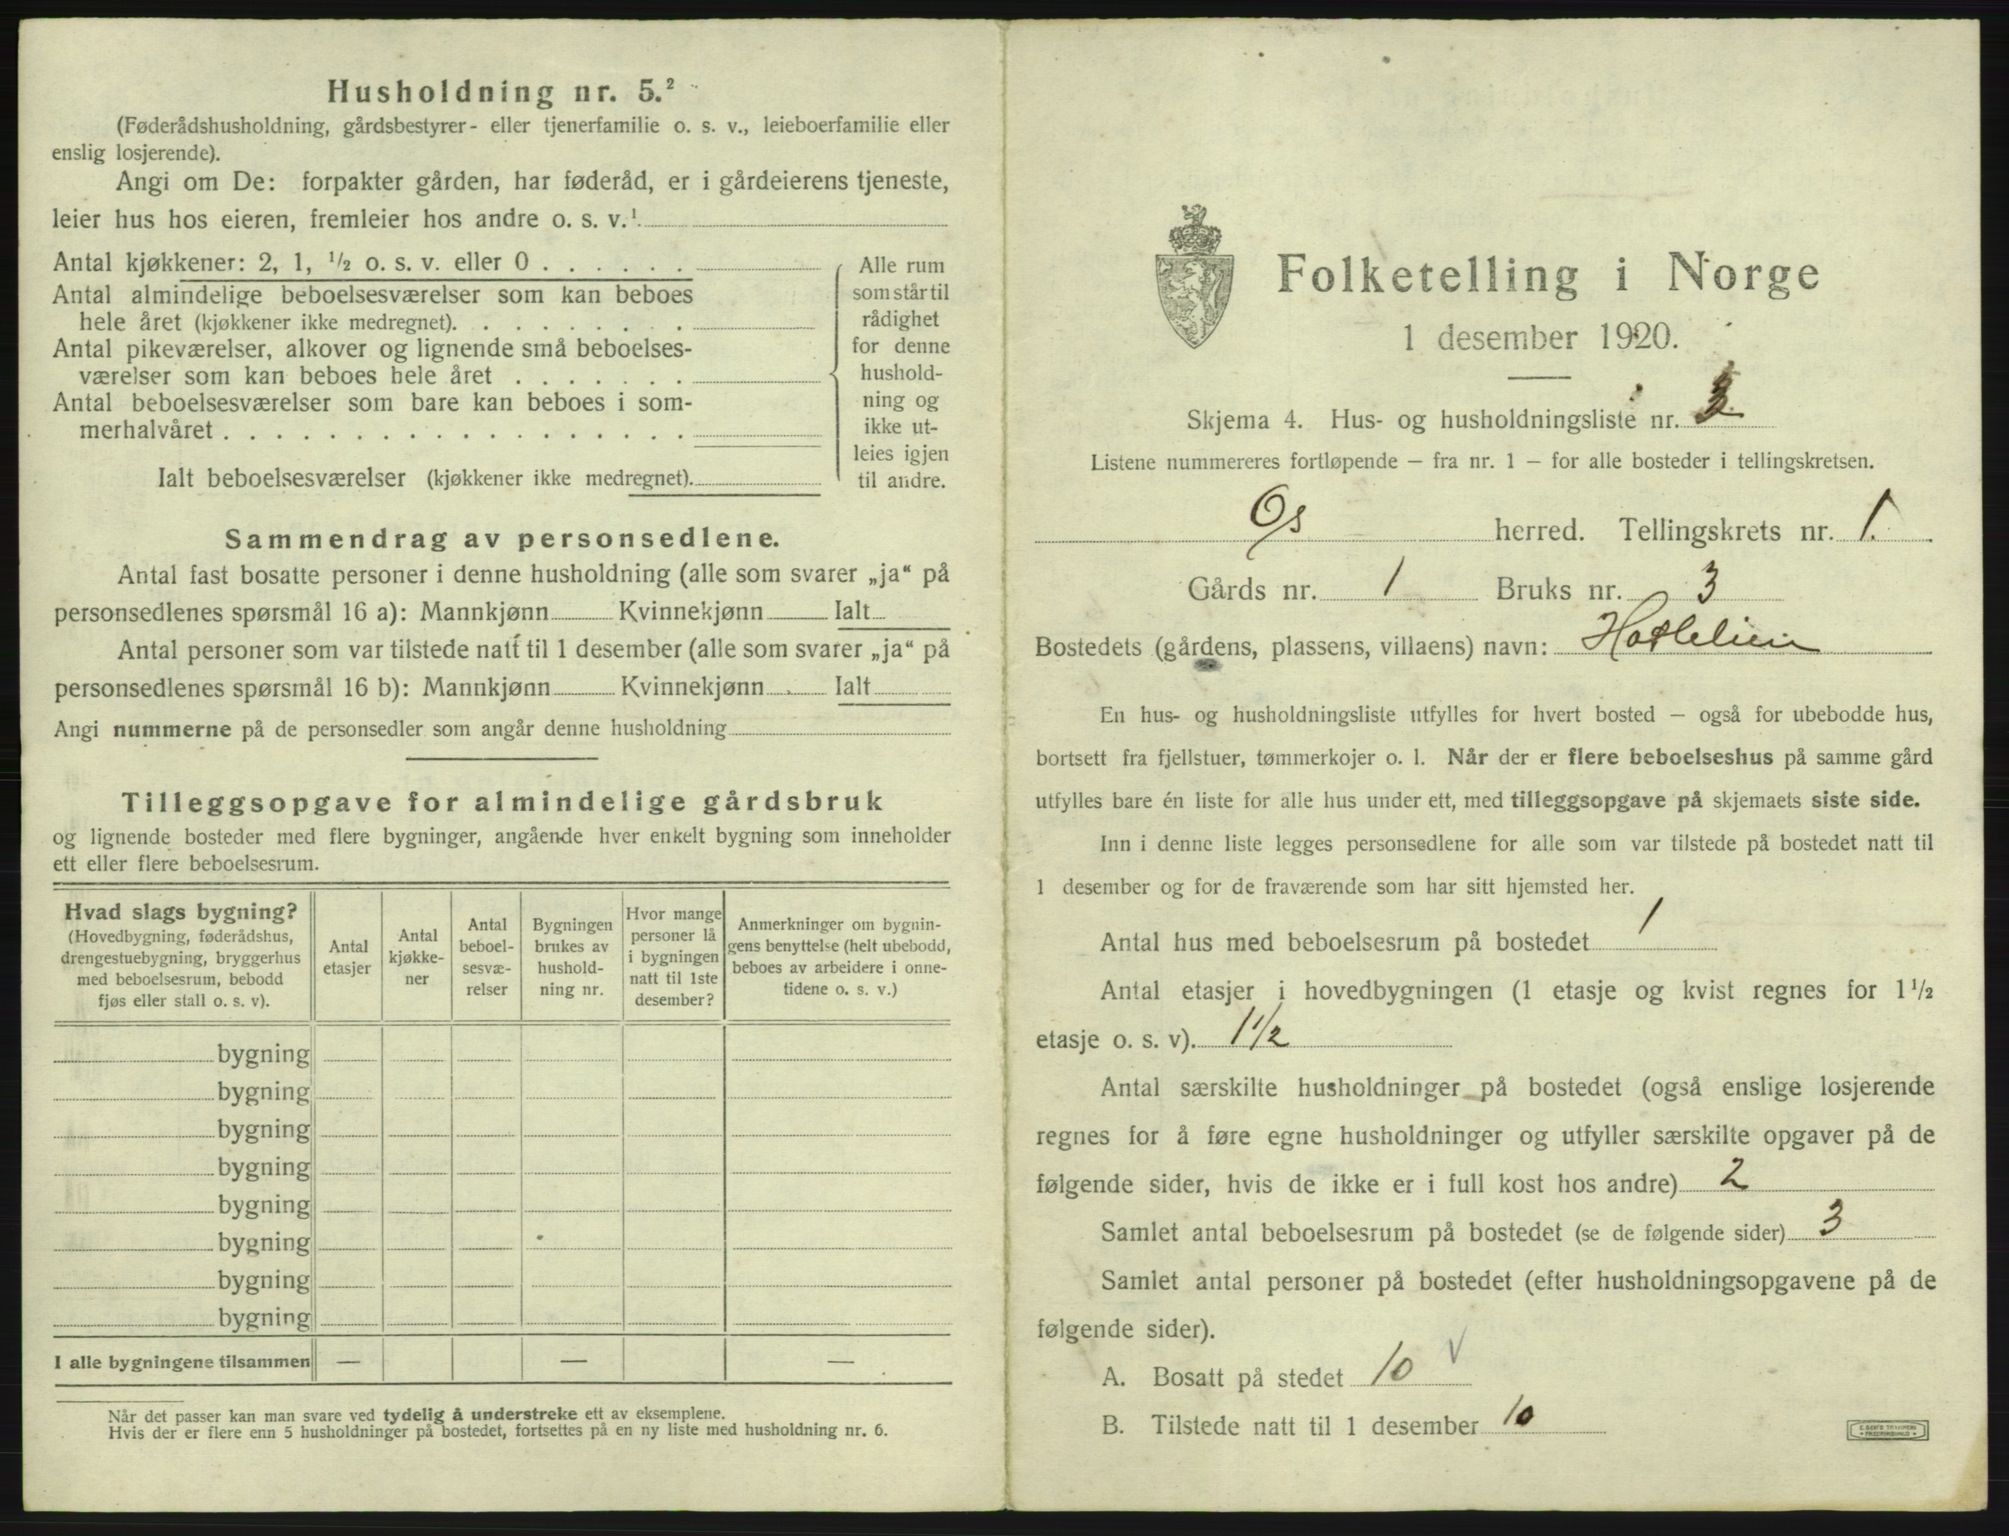 Husholdning nr. 5.²
(Føderådshusholdning, gårdsbestyrer- eller tjenerfamilie o. s. v., leieboerfamilie eller
enslig losjerende).
Angi om De: forpakter gården, har føderåd, er i gårdeierens tjeneste,
leier hus hos eieren, fremleier hos andre o. s. v.¹
Antal kjøkkener: 2, 1, ½ o. s. v. eller 0 . . . . . .
Antal almindelige beboelsesværelser som kan beboes
hele året (kjøkkener ikke medregnet). . . . . . . . .
Antal pikeværelser, alkover og lignende små beboelses-
værelser som kan beboes hele året . . . . . . .
Antal beboelsesværelser som bare kan beboes i som-
merhalvåret . . . . . . . . . . . . . . . . . .
Ialt beboelsesværelser (kjøkkener ikke medregnet).
Alle rum
som står til
rådighet
for denne
hushold-
ning og
ikke ut-
leies igjen
til andre.
Sammendrag av personsedlene.
Antal fast bosatte personer i denne husholdning (alle som svarer „ja“ på
personsedlenes spørsmål 16 a): Mannkjønn Kvinnekjønn Ialt
Antal personer som var tilstede natt til 1 desember (alle som svarer „ja“ på
personsedlenes spørsmål 16 b): Mannkjønn Kvinnekjønn Ialt
Angi nummerne på de personsedler som angår denne husholdning
Tilleggsopgave for almindelige gårdsbruk
og lignende bosteder med flere bygninger, angående hver enkelt bygning som inneholder
ett eller flere beboelsesrum.
Hvad slags bygning?
(Hovedbygning, føderådshus,
drengestuebygning, bryggerhus
med beboelsesrum, bebodd
fjøs eller stall o. s. v).
Antal
etasjer
Antal
kjøkke-
ner
Antal
beboel-
sesvæ-
relser
Bygningen
brukes av
hushold-
ning nr.
Hvor mange
personer lå
i bygningen
natt til 1ste
desember?
Anmerkninger om bygnin-
gens benyttelse (helt ubebodd,
beboes av arbeidere i onne-
tidene o. s. v.)
bygning
bygning
bygning
bygning
bygning
bygning
bygning
bygning
I alle bygningene tilsammen — — —
Når det passer kan man svare ved tydelig å understreke ett av eksemplene.
Hvis der er flere enn 5 husholdninger på bostedet, fortsettes på en ny liste med husholdning nr. 6.
Folketelling i Norge
1 desember 1920.
Skjema 4. Hus- og husholdningsliste nr. 3
Listene nummereres fortløpende – fra nr. 1 – for alle bosteder i tellingskretsen.
Os herred. Tellingskrets nr. 1.
Gårds nr. 1 Bruks nr. 3
Bostedets (gårdens, plassens, villaens) navn:
En hus- og husholdningsliste utfylles for hvert bosted – også for ubebodde hus,
bortsett fra fjellstuer, tømmerkojer o. l. Når der er flere beboelseshus på samme gård
utfylles bare én liste for alle hus under ett, med tilleggsopgave på skjemaets siste side.
Inn i denne liste legges personsedlene for alle som var tilstede på bostedet natt til
1 desember og for de fraværende som har sitt hjemsted her.
Antal hus med beboelsesrum på bostedet 1
Antal etasjer i hovedbygningen (1 etasje og kvist regnes for 1½
etasje o. s. v). 1½
Antal særskilte husholdninger på bostedet (også enslige losjerende
regnes for å føre egne husholdninger og utfyller særskilte opgaver på de
følgende sider, hvis de ikke er i full kost hos andre) 2
Samlet antal beboelsesrum på bostedet (se de følgende sider) 3
Samlet antal personer på bostedet (efter husholdningsopgavene på de
følgende sider).
A. Bosatt på stedet 10 v
B. Tilstede natt til 1 desember 10